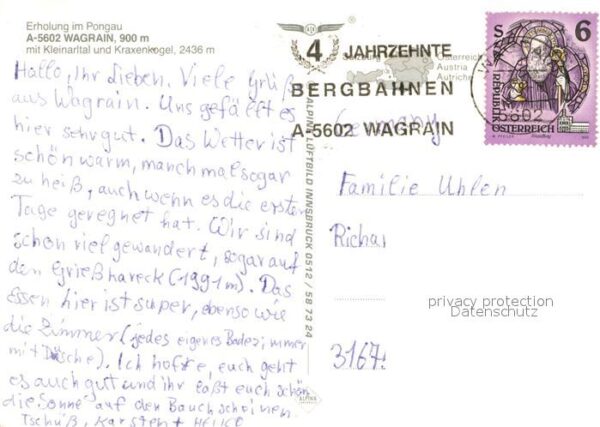 Erholung im Pongau
A-5602 WAGRAIN, 900 m
mit Kleinarltal und Kraxenkogel, 2436 m
Hallo, Ihr Lieben. Viele Grüße
aus Wagrain. Uns gefällt es
hier sehr gut. Das Wetter ist
schön warm, manchmal sogar
zu heiß, auch wenn es die ersten
Tage geregnet hat. Wir sind
schon viel gewandert, sogar auf
den Grießkareck (1991m). Das
Essen hier ist super, ebenso wie
die Zimmer (jedes eigenes Badezimmer
mit Dusche). Ich hoffe, euch geht
es auch gut und ihr laßt euch schön
die Sonne auf den Bauch scheinen
Tschüß, Karsten + Heiko
ALPINE LUFTBILD INNSBRUCK 0512 / 58 73 24
ALPINA
4 JAHRZEHNTE
BERGBAHNEN
A-5602 WAGRAIN
Salzburg
Österreich
Austria
Autriche
5602
S 6
REPUBLIK
ÖSTERREICH
Germany
Familie Uhlen
Richar
3167
privacy protection
Datenschutz